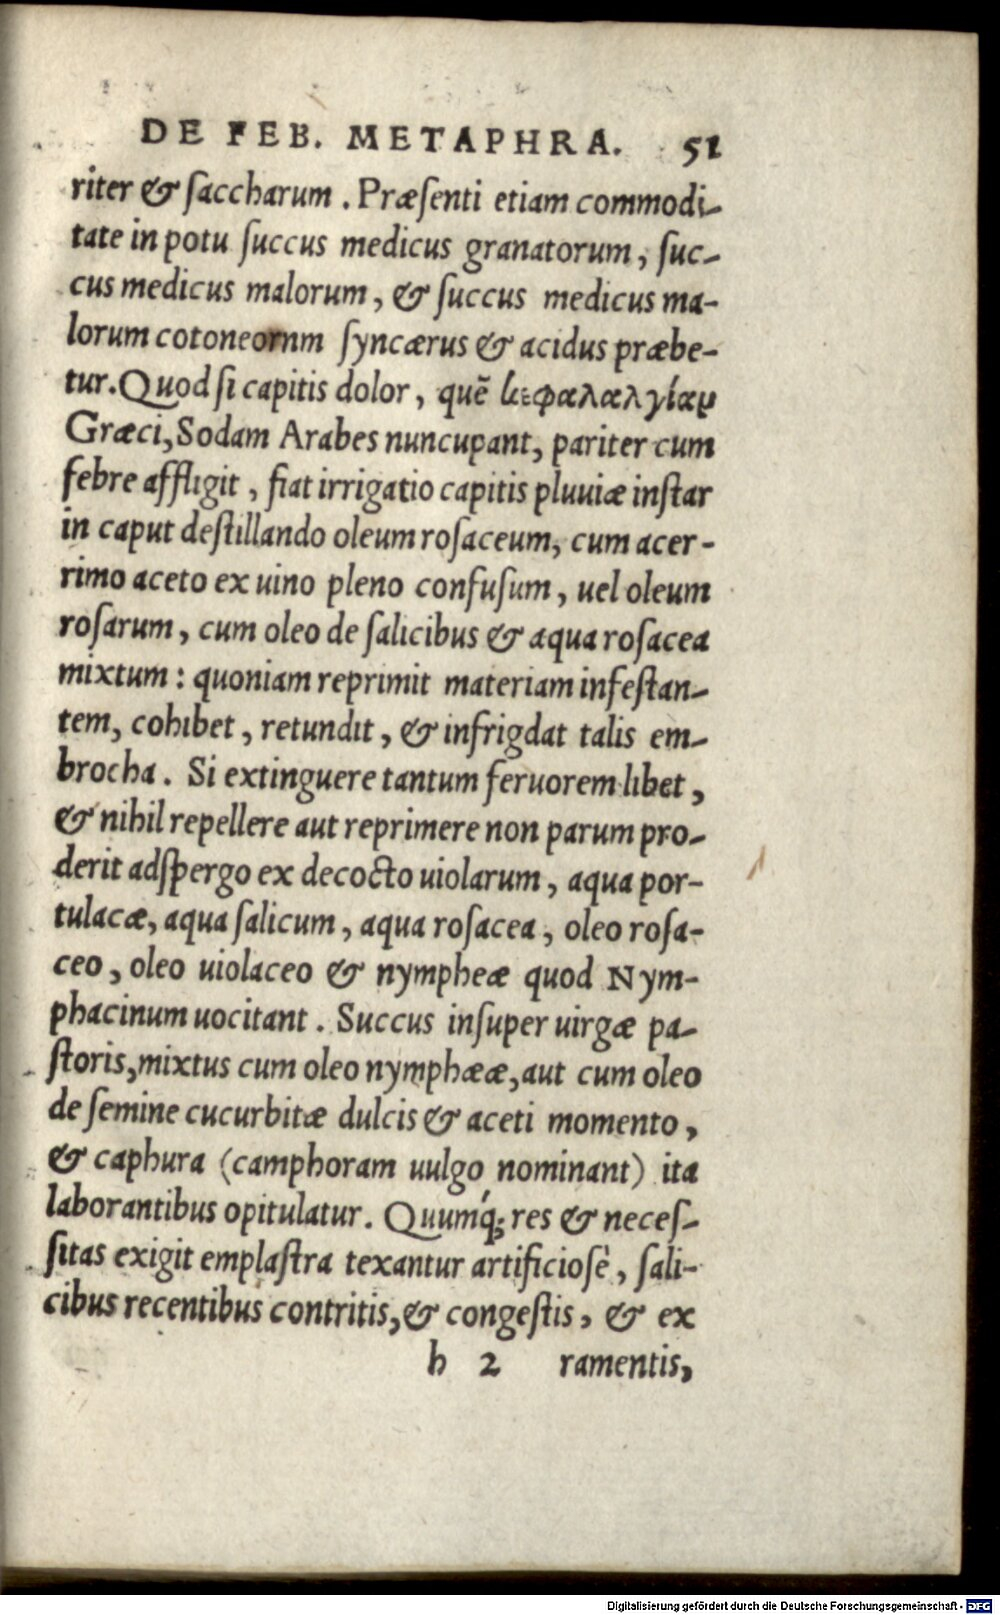 DE FEB. METAPHRA. 51
riter & ſaccharum . Præſenti etiam commodi-
tate in potu ſuccus medicus granatorum, ſuc-
cus medicus malorum, & ſuccus medicus ma-
lorum cotoneornm ſyncærus & acidus præbe-
tur. Quod ſi capitis dolor, quē κεφαλαλγίαμ
Græci, Sodam Arabes nuncupant, pariter cum
febre affligit, fiat irrigatio capitis pluuiæ inſtar
in caput deſtillando oleum roſaceum, cum acer-
rimo aceto ex uino pleno confuſum, uel oleum
roſarum, cum oleo de ſalicibus & aqua roſacea
mixtum : quoniam reprimit materiam infeſtan-
tem, cohibet, retundit, & infrigdat talis em-
brocha. Si extinguere tantum feruorem libet,
& nihil repellere aut reprimere non parum pro-
derit adſpergo ex decocto uiolarum, aqua por-
tulacæ, aqua ſalicum, aqua roſacea, oleo roſa-
ceo, oleo uiolaceo & nympheæ quod Nym-
phacinum uocitant. Succus inſuper uirgæ pa-
ſtoris, mixtus cum oleo nymphææ, aut cum oleo
de ſemine cucurbitæ dulcis & aceti momento,
& caphura (camphoram uulgo nominant) ita
laborantibus opitulatur. Quumq́; res & neceſ-
ſitas exigit emplaſtra texantur artificioſè, ſali-
cibus recentibus contritis, & congeſtis, & ex
h 2 ramentis,
Digitalisierung gefördert durch die Deutsche Forschungsgemeinschaft - DFG